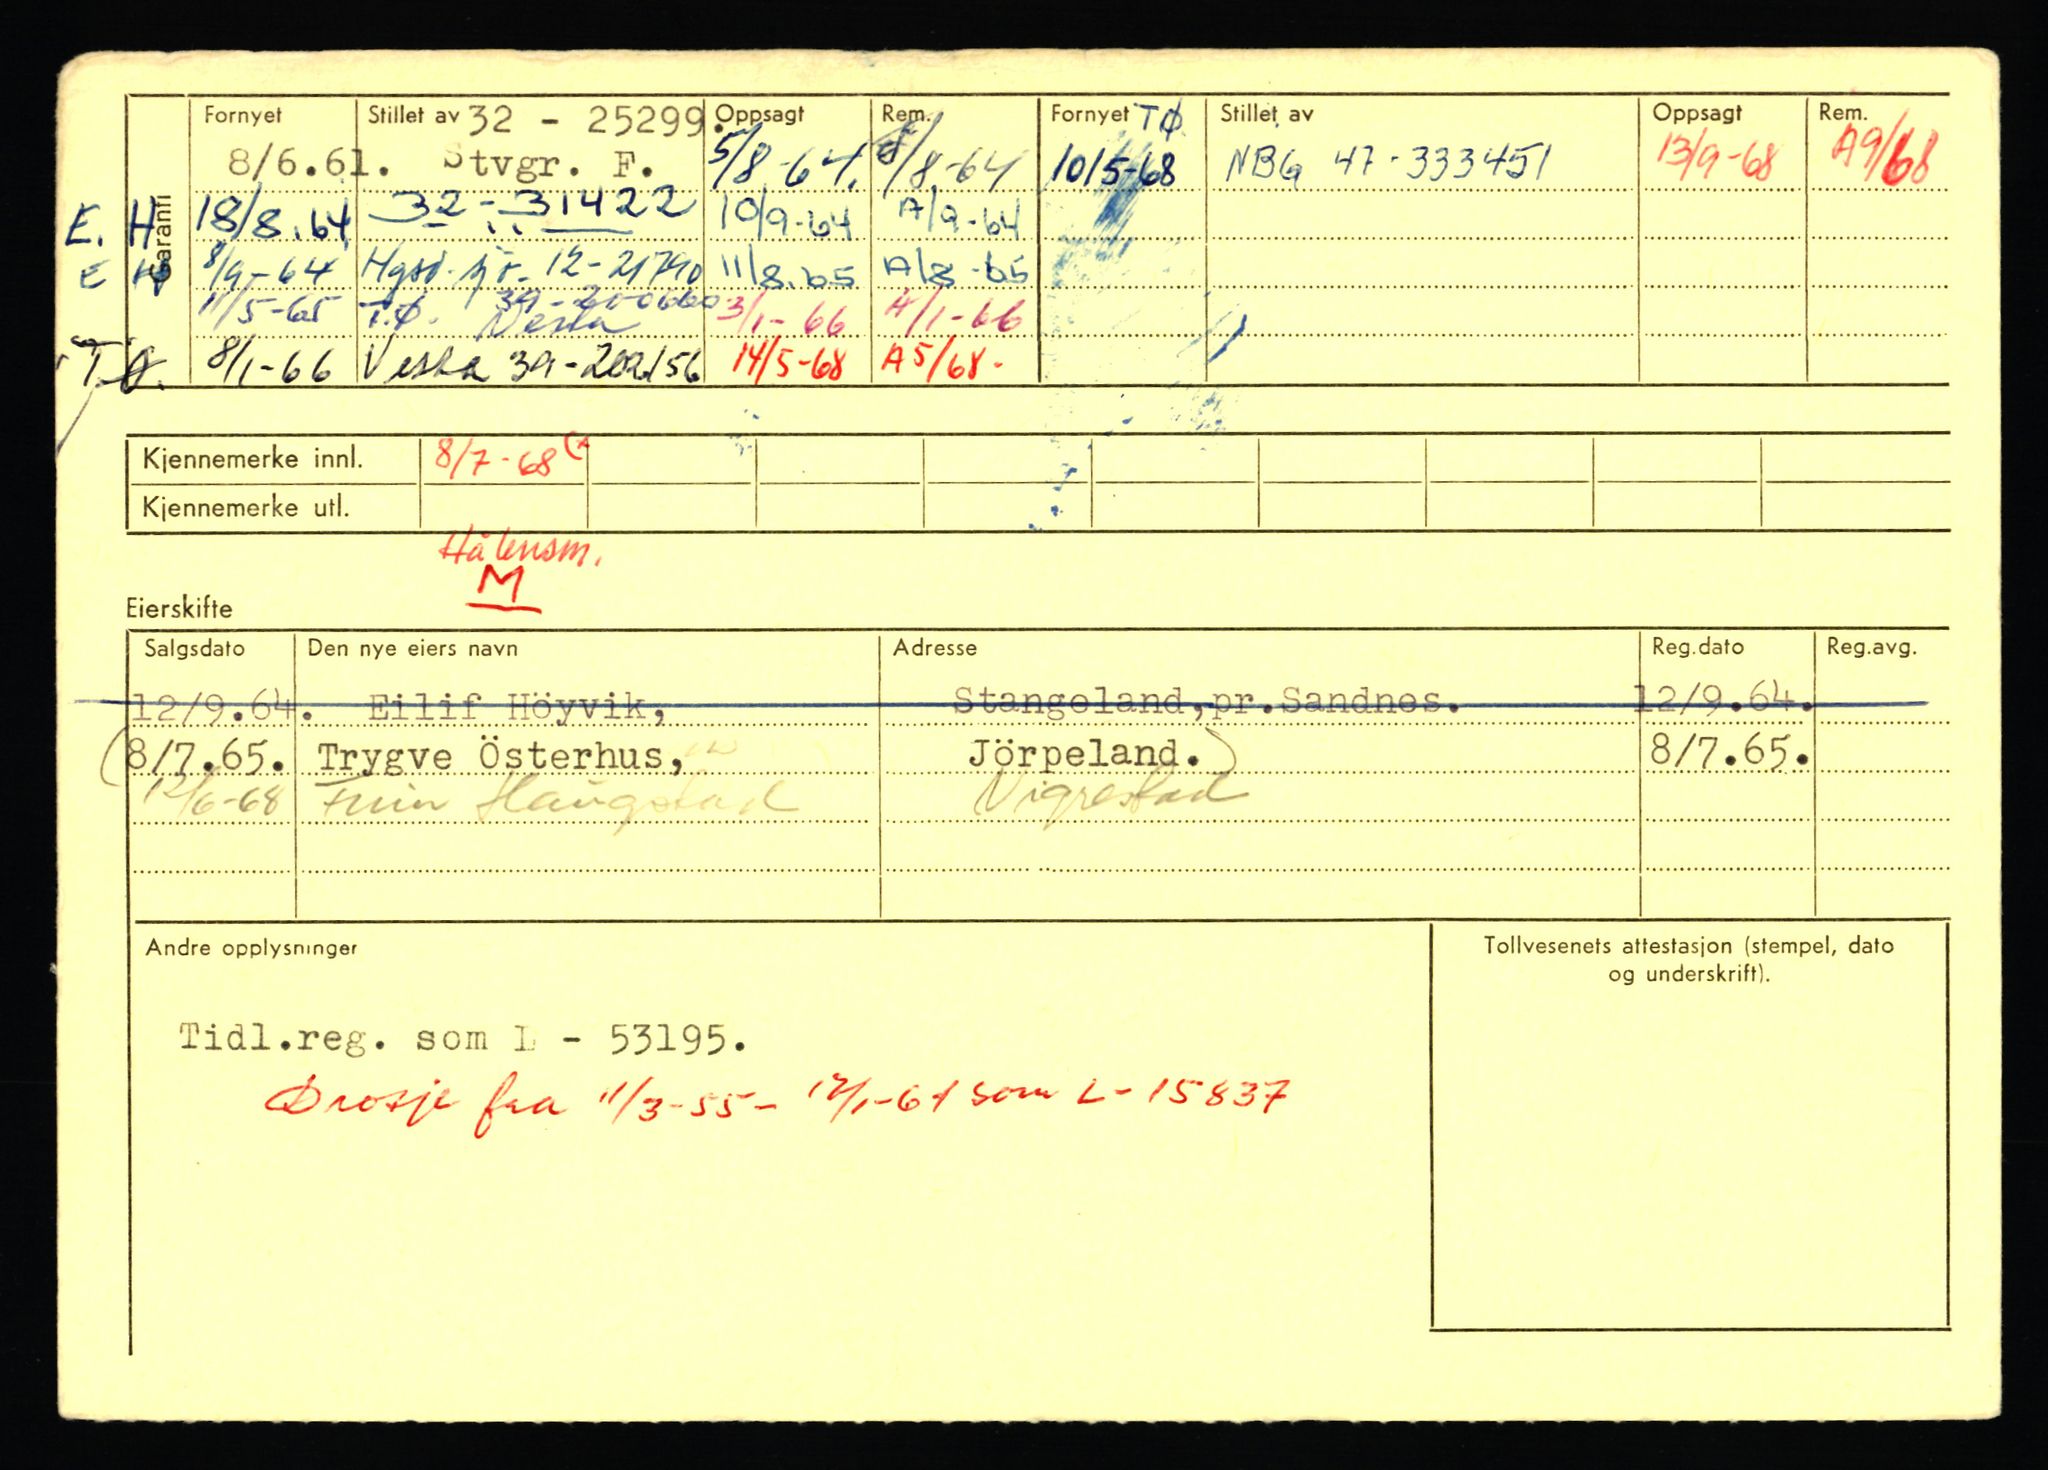 Garanti
Fornyet Stillet av 32 - 25299. Oppsagt Rem. Fornyet TØ Stillet av Oppsagt Rem.
8/6.61. Stvgr. F. 5/8-64. /8-64 10/5-68 NBG 47-333451 13/9-68 A9/68
E. H 18/8.64 32-31422 10/9-64 A/9-64
E H 8/9-64 12-21790 11/8.65 A/8-65
11/5-65 T.Ø. 39-200660 Vesta 3/1-66 4/1-66
T.Ø. 8/1-66 Vesta 39-202156 14/5-68 A5/68-
Kjennemerke innl. 8/7-68
Kjennemerke utl.
M
Eierskifte
Salgsdato Den nye eiers navn Adresse Reg.dato Reg.avg.
12/9.64. Eilif Höyvik, Stangeland,pr.Sandnes. 12/9.64.
(8/7.65. Trygve Österhus, Jörpeland.) 8/7.65.
12/6-68 Finn Haugstad Vigrestad
Andre opplysninger
Tollvesenets attestasjon (stempel, dato
og underskrift).
Tidl.reg. som L - 53195.
Drosje fra 11/3-55- 12/1-61 som L-15837